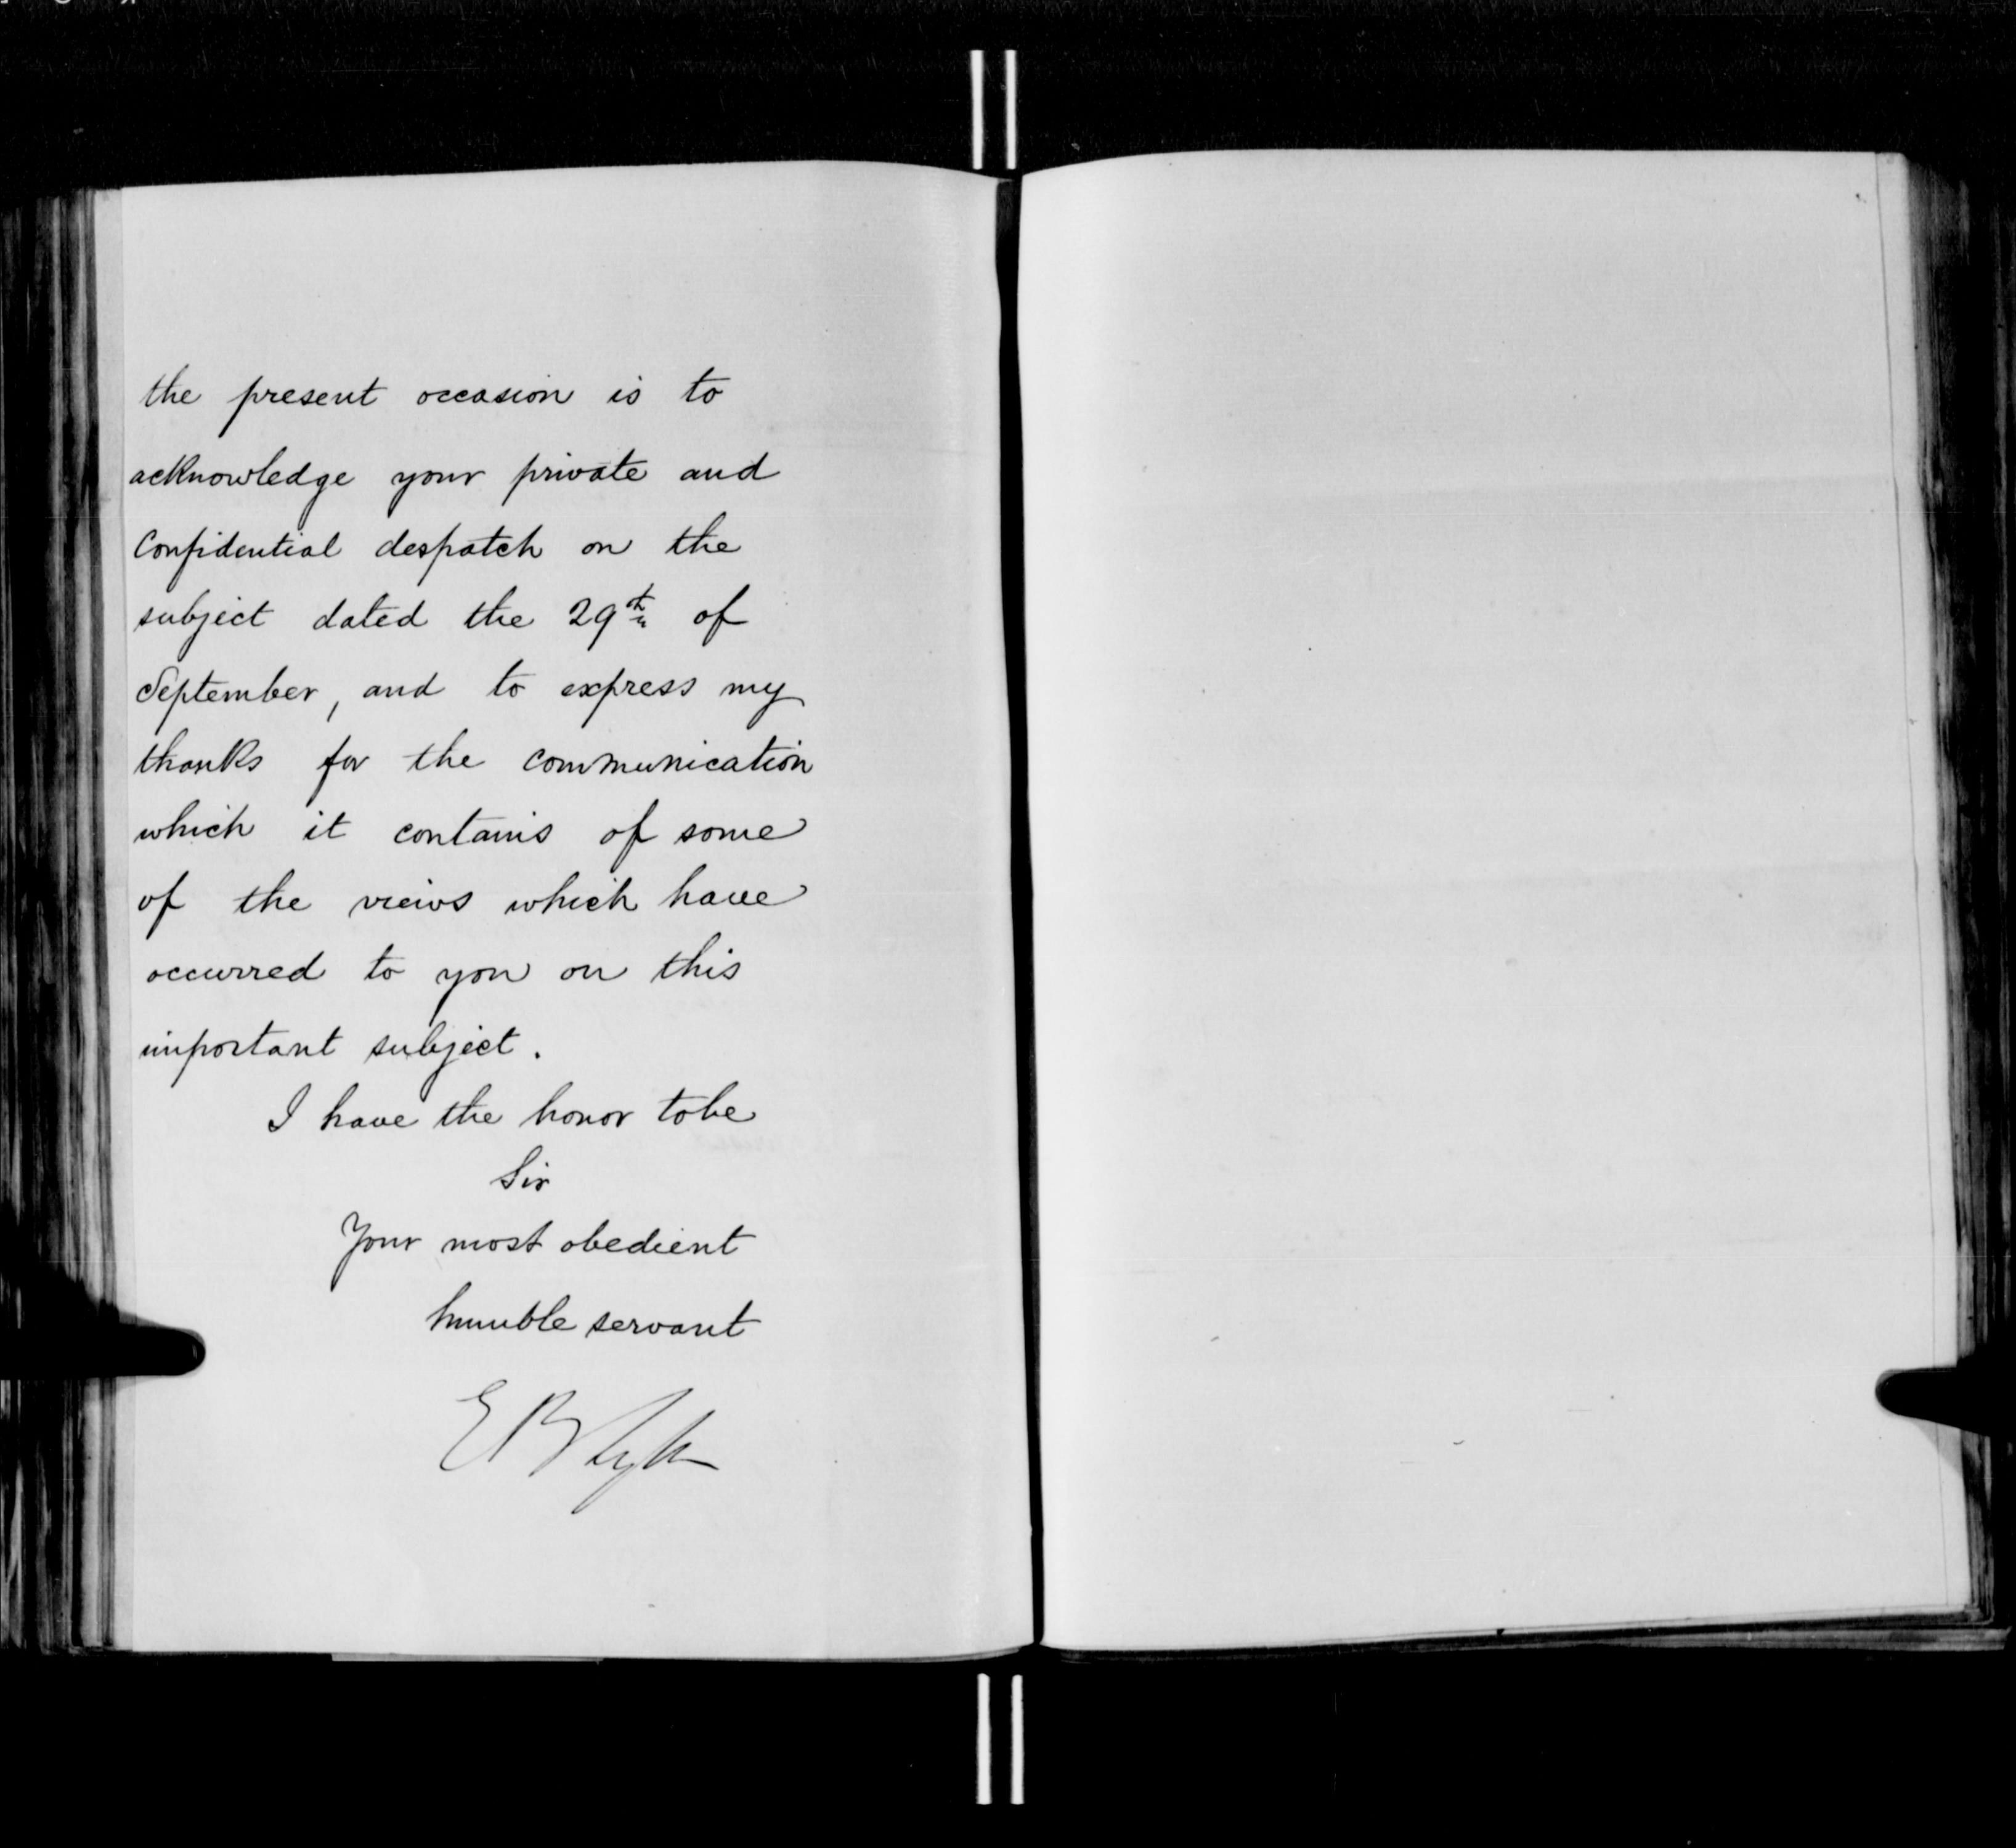 the present occasion is to
acknowledge your private and
confidential despatch on the
subject dated the 29th of
September, and to express my
thanks for the communication
which it contains of some
of the views which have
occurred to you on this
important subject.
I have the honor to be
Sir
Your most obedient
humble servant